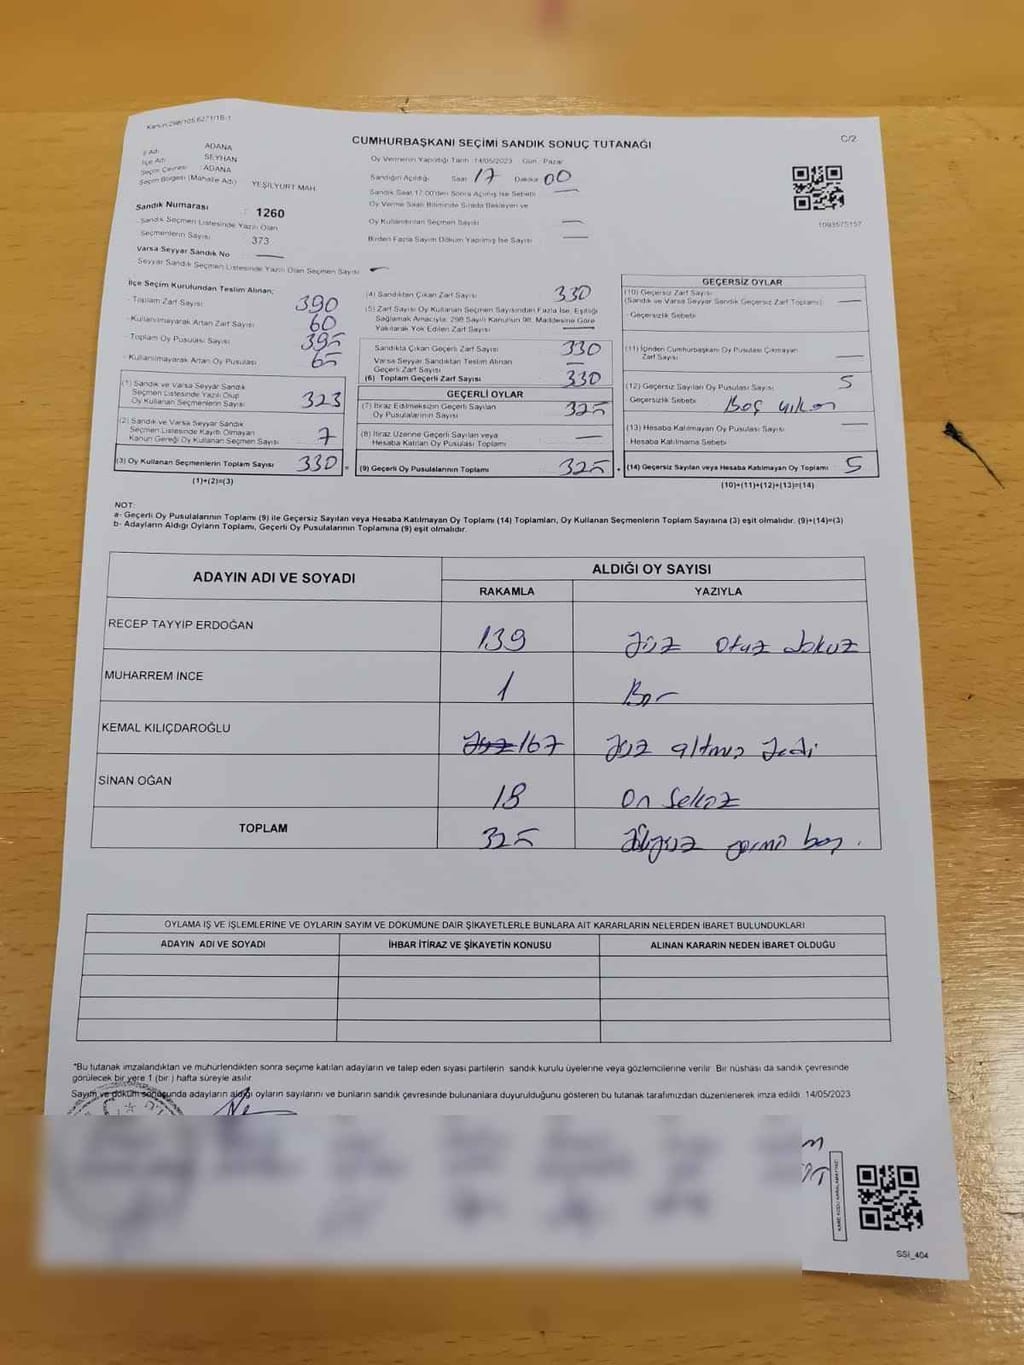 Kanun:298/105,6271/1B-1
C/2
CUMHURBAŞKANI SEÇİMİ SANDIK SONUÇ TUTANAĞI
İl Adı ADANA
İlçe Adı SEYHAN
Seçim Çevresi ADANA
Seçim Bölgesi (Mahalle Adı) YEŞİLYURT MAH.
Sandık Numarası : 1260
Sandık Seçmen Listesinde Yazılı Olan
Seçmenlerin Sayısı 373
Varsa Seyyar Sandık No
Seyyar Sandık Seçmen Listesinde Yazılı Olan Seçmen Sayısı
Oy Vermenin Yapıldığı Tarih : 14/05/2023 Gün : Pazar
Sandığın Açıldığı Saat : 17 Dakika : 00
Sandık Saat 17:00'den Sonra Açılmış İse Sebebi
Oy Verme Saati Bitiminde Sırada Bekleyen ve
Oy Kullandırılan Seçmen Sayısı
Birden Fazla Sayım Döküm Yapılmış İse Sayısı
1093575157
İlçe Seçim Kurulundan Teslim Alınan;
- Toplam Zarf Sayısı 390
- Kullanılmayarak Artan Zarf Sayısı 60
- Toplam Oy Pusulası Sayısı 395
- Kullanılmayarak Artan Oy Pusulası 65
(1) Sandık ve Varsa Seyyar Sandık
Seçmen Listesinde Yazılı Olup
Oy Kullanan Seçmenlerin Sayısı 323
(2) Sandık ve Varsa Seyyar Sandık
Seçmen Listesinde Kayıtlı Olmayan
Kanun Gereği Oy Kullanan Seçmen Sayısı 7
(3) Oy Kullanan Seçmenlerin Toplam Sayısı 330 =
(1)+(2)=(3)
(4) Sandıktan Çıkan Zarf Sayısı 330
(5) Zarf Sayısı Oy Kullanan Seçmen Sayısından Fazla İse, Eşitliği
Sağlamak Amacıyla; 298 Sayılı Kanunun 98. Maddesine Göre
Yakılarak Yok Edilen Zarf Sayısı
Sandıkta Çıkan Geçerli Zarf Sayısı 330
Varsa Seyyar Sandıktan Teslim Alınan
Geçerli Zarf Sayısı
(6) Toplam Geçerli Zarf Sayısı 330
GEÇERLİ OYLAR
(7) İtiraz Edilmeksizin Geçerli Sayılan
Oy Pusulalarının Sayısı 325
(8) İtiraz Üzerine Geçerli Sayılan veya
Hesaba Katılan Oy Pusulası Toplamı
(9) Geçerli Oy Pusulalarının Toplamı 325 +
GEÇERSİZ OYLAR
(10) Geçersiz Zarf Sayısı
(Sandık ve Varsa Seyyar Sandık Geçersiz Zarf Toplamı)
Geçersizlik Sebebi
(11) İçinden Cumhurbaşkanı Oy Pusulası Çıkmayan
Zarf Sayısı
(12) Geçersiz Sayılan Oy Pusulası Sayısı 5
Geçersizlik Sebebi Boş
(13) Hesaba Katılmayan Oy Pusulası Sayısı
Hesaba Katılmama Sebebi
(14) Geçersiz Sayılan veya Hesaba Katılmayan Oy Toplamı 5
(10)+(11)+(12)+(13)=(14)
NOT:
a- Geçerli Oy Pusulalarının Toplamı (9) ile Geçersiz Sayılan veya Hesaba Katılmayan Oy Toplamı (14) Toplamları, Oy Kullanan Seçmenlerin Toplam Sayısına (3) eşit olmalıdır. (9)+(14)=(3)
b- Adayların Aldığı Oyların Toplamı, Geçerli Oy Pusulalarının Toplamına (9) eşit olmalıdır.
ADAYIN ADI VE SOYADI ALDIĞI OY SAYISI
RAKAMLA YAZIYLA
RECEP TAYYİP ERDOĞAN 139 Yüz otuz dokuz
MUHARREM İNCE 1 Bir
KEMAL KILIÇDAROĞLU 167 Yüz altmış yedi
SİNAN OĞAN 18 On Sekiz
TOPLAM 325 Üçyüz yirmi beş.
OYLAMA İŞ VE İŞLEMLERİNE VE OYLARIN SAYIM VE DÖKÜMÜNE DAİR ŞİKAYETLERLE BUNLARA AİT KARARLARIN NELERDEN İBARET BULUNDUKLARI
ADAYIN ADI VE SOYADI İHBAR İTİRAZ VE ŞİKAYETİN KONUSU ALINAN KARARIN NEDEN İBARET OLDUĞU
*Bu tutanak imzalandıktan ve mühürlendikten sonra seçime katılan adayların ve talep eden siyasi partilerin sandık kurulu üyelerine veya gözlemcilerine verilir. Bir nüshası da sandık çevresinde
görülecek bir yere 1 (bir ) hafta süreyle asılır.
Sayım ve döküm sonucunda adayların aldığı oyların sayılarını ve bunların sandık çevresinde bulunanlara duyurulduğunu gösteren bu tutanak tarafımızdan düzenlenerek imza edildi. 14/05/2023
SSI_404